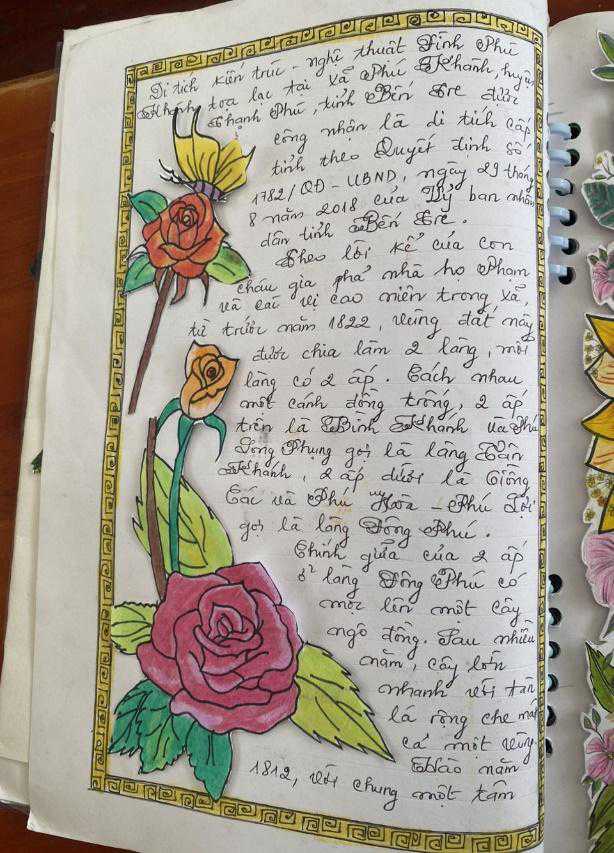 Di tích kiến trúc - nghệ thuật Đình Phú
Khánh tọa lạc tại xã Phú Khánh, huyện
Thạnh Phú, tỉnh Bến Tre được
công nhận là di tích cấp
tỉnh theo Quyết định số
1782/QĐ-UBND, ngày 29 tháng
8 năm 2018 của Uỷ ban nhân
dân tỉnh Bến Tre.
Theo lời kể của con
cháu gia phả nhà họ Phạm
và các vị cao niên trong xã,
từ trước năm 1822, vùng đất này
được chia làm 2 làng, mỗi
làng có 2 ấp. Cách nhau
một cánh đồng trống, 2 ấp
trên là Bình Khánh và Phú
Long Phụng gọi là làng
Khánh, 2 ấp dưới là Giồng
và Phú Hòa - Phú Lợi
gọi là làng Đông Phú.
Chính giữa của 2 ấp
ở làng Đông Phú có
mọc lên một cây
ngô đồng. Sau nhiều
năm, cây lớn
nhanh với tán
lá rộng che mát
cả một vùng.
Vào năm
1812, với chung một tâm